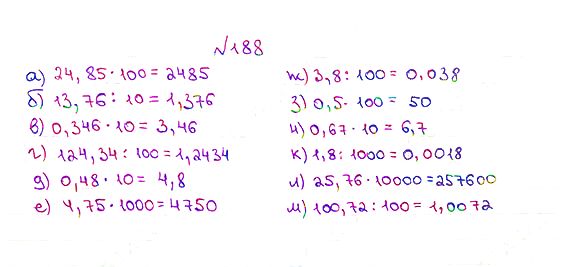 №188
а) 24,85·100=2485
б) 13,76:10=1,376
в) 0,346·10=3,46
г) 124,34:100=1,2434
д) 0,48·10=4,8
е) 4,75·1000=4750
ж) 3,8:100=0,038
з) 0,5·100=50
и) 0,67·10=6,7
к) 1,8:1000=0,0018
л) 25,76·10000=257600
м) 100,72:100=1,0072